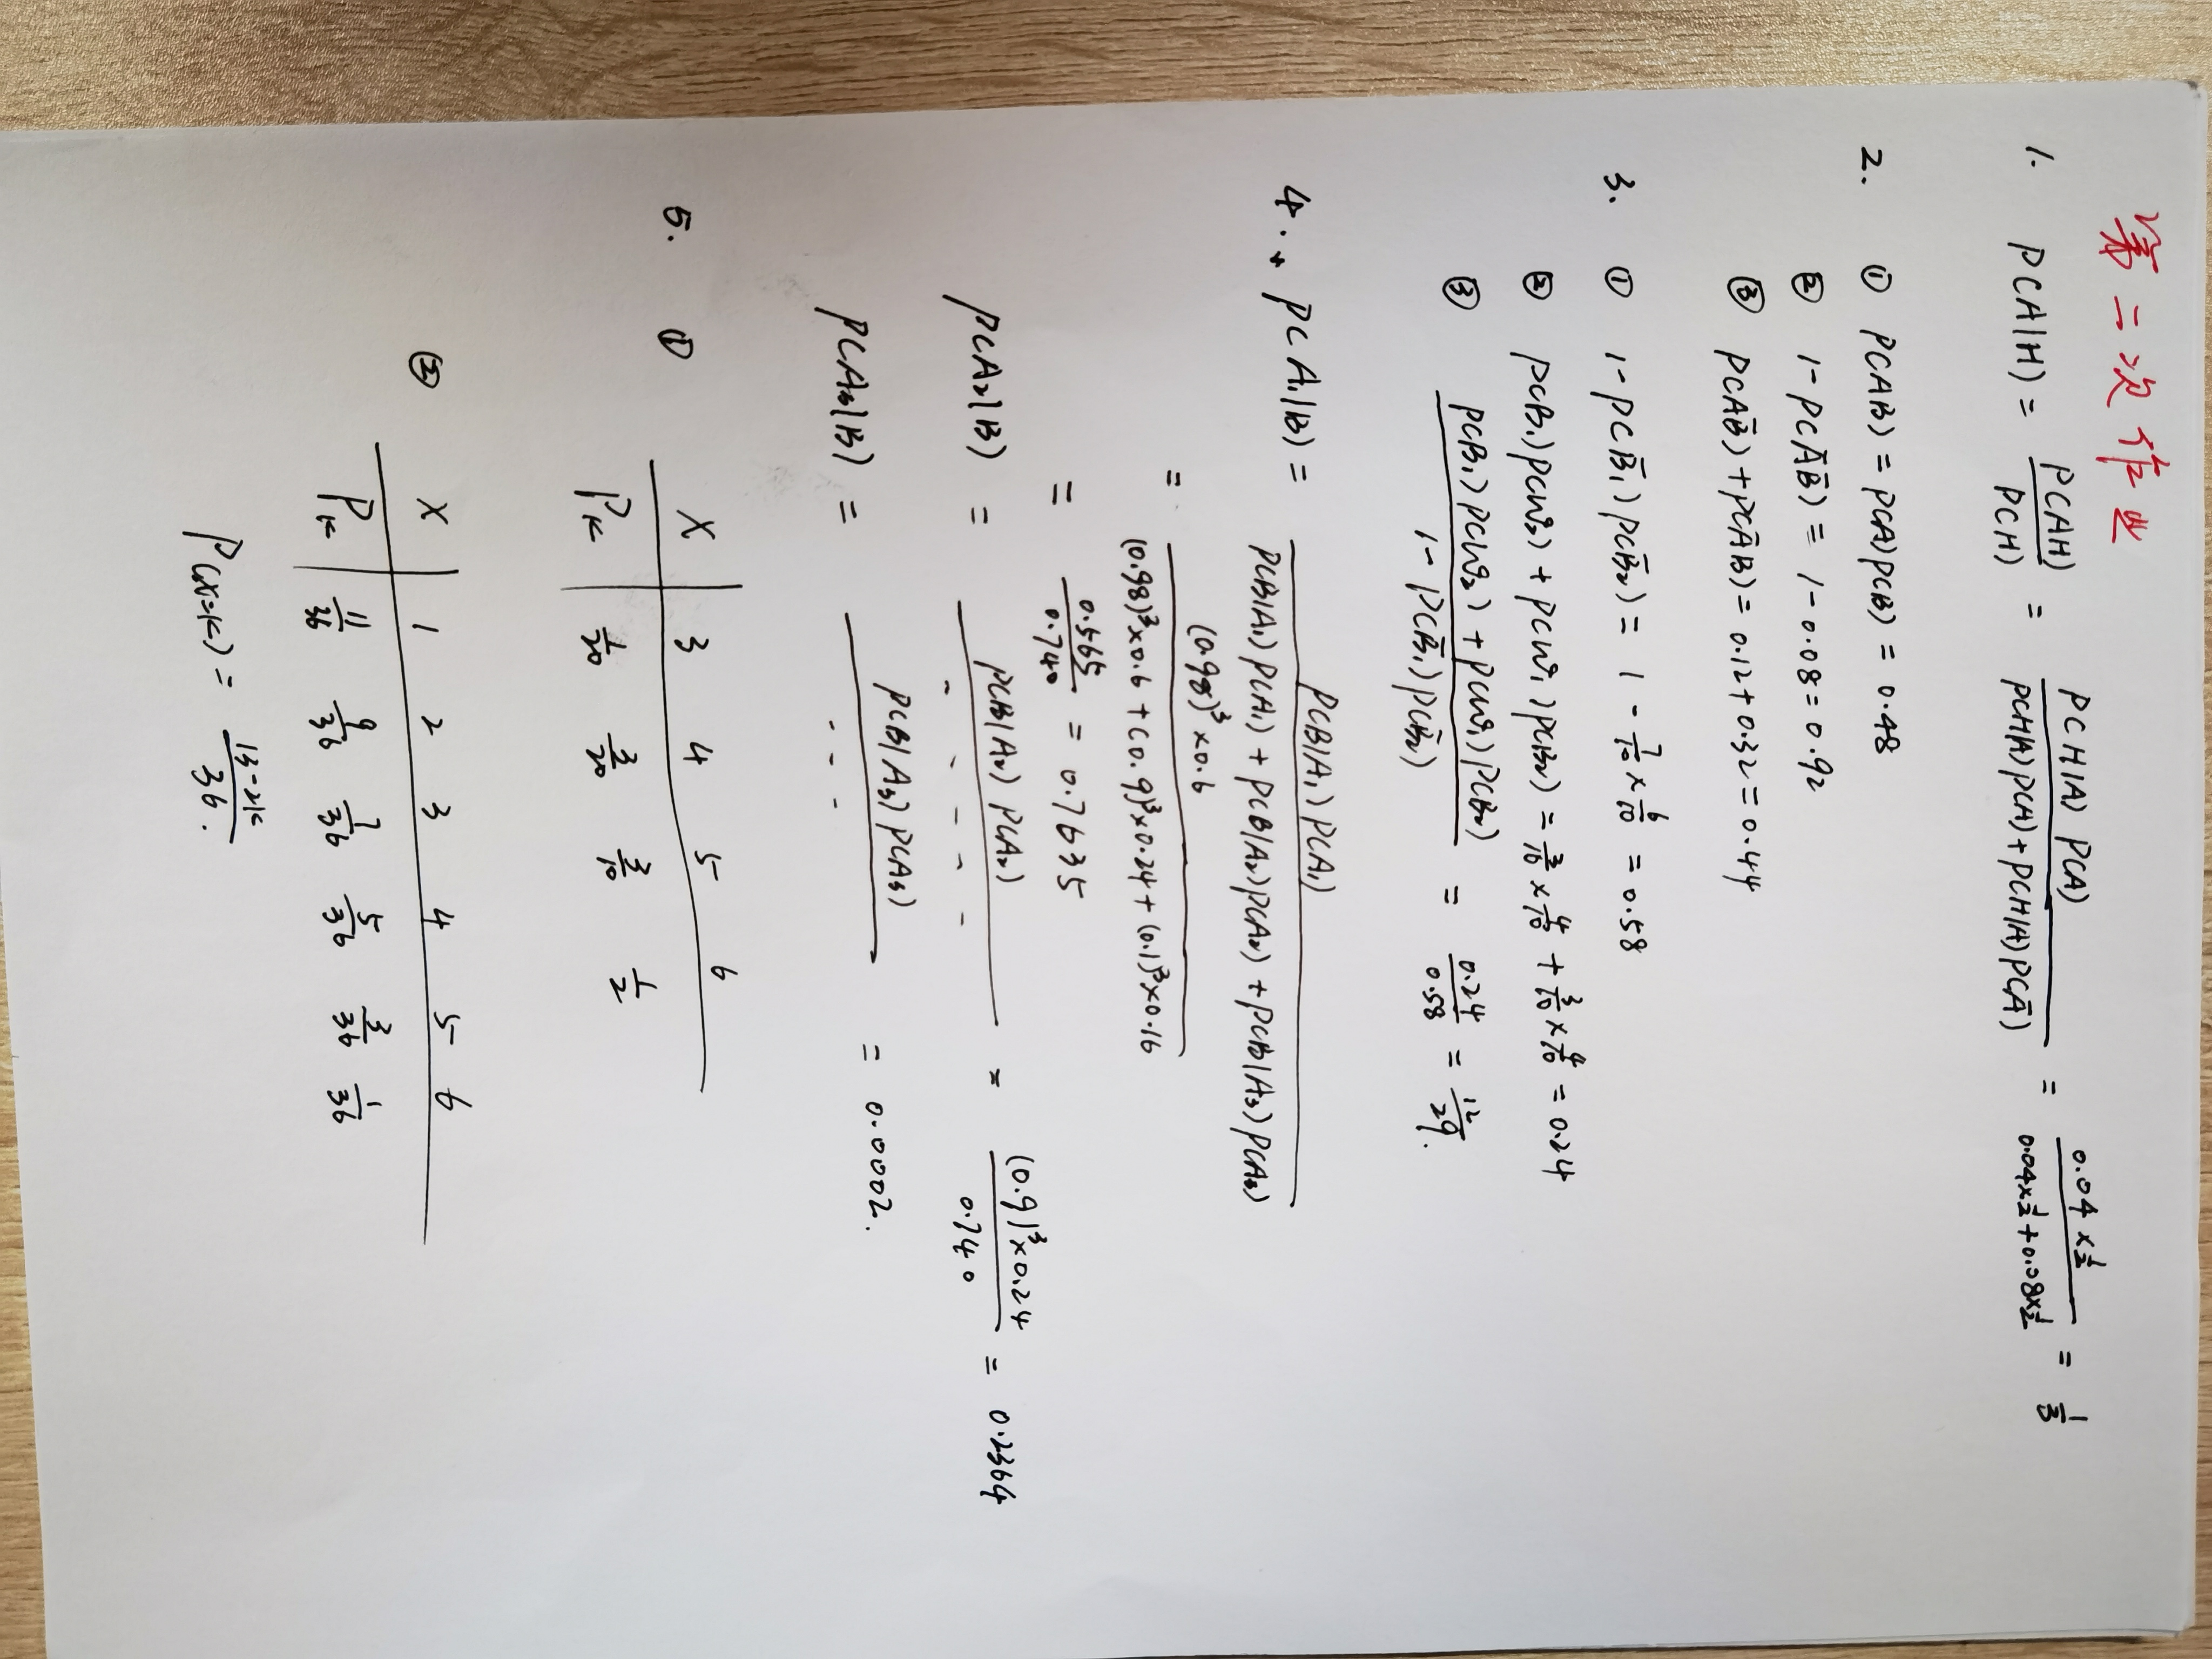 第二次作业
1. P(A|H) = P(AH)/P(H) = P(H|A)P(A)/P(H|A)P(A)+P(H|Ā)P(Ā) = 0.04×1/2 / 0.04×1/2+0.08×1/2 = 1/3
2. ① P(AB) = P(A)P(B) = 0.48
② 1-P(ĀB̄) = 1-0.08=0.92
③ P(AB̄)+P(ĀB)= 0.12+0.32=0.44
3. ① 1-P(B̄₁)P(B̄₂) = 1 - 7/10 × 6/10 = 0.58
② P(B₁)P(W₂) + P(W₁)P(B₂) = 3/10 × 4/10 + 3/10 × 4/10 = 0.24
③ P(B₁)P(W₂) + P(W₁)P(B₂) / 1-P(B̄₁)P(B̄₂) = 0.24/0.58 = 12/29.
4. P(A₁|B) = P(B|A₁)P(A₁) / P(B|A₁)P(A₁) + P(B|A₂)P(A₂) + P(B|A₃)P(A₃)
= (0.98)³×0.6 / (0.98)³×0.6 + (0.9)³×0.24 + (0.1)³×0.16
= 0.565/0.740 = 0.7635
P(A₂|B) = P(B|A₂)P(A₂) / - - - - = (0.9)³×0.24 / 0.740 = 0.2364
P(A₃|B) = P(B|A₃)P(A₃) / - - - = 0.0002.
5. ① X 3 4 5 6
Pk 1/20 3/20 3/10 1/2
② X 1 2 3 4 5 6
Pk 11/36 9/36 7/36 5/36 3/36 1/36
P(X=k) = 13-2k/36.